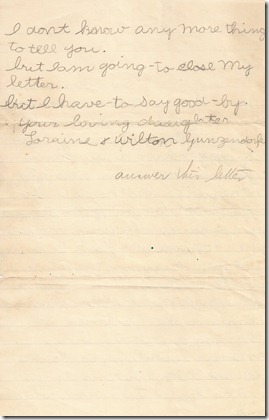 I don't know any more thing
to tell you.
but I am going to close My
letter.
but I have to say good-by.
your loving daughter
Loraine & Wilton Gunzendorf
answer this letter